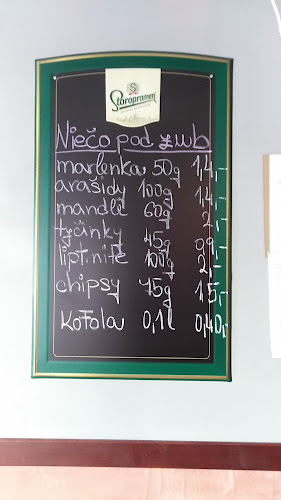 Staropramen
Niečo pod zub
marlenka 50g 1,4,-
arašidy 100g 1,4,-
mandle 60g 2,-
tyčinky 45g 0,9,-
liptinite 100g 2,-
chipsy 75g 1,5,-
Kofola 0,1l 0,40,-